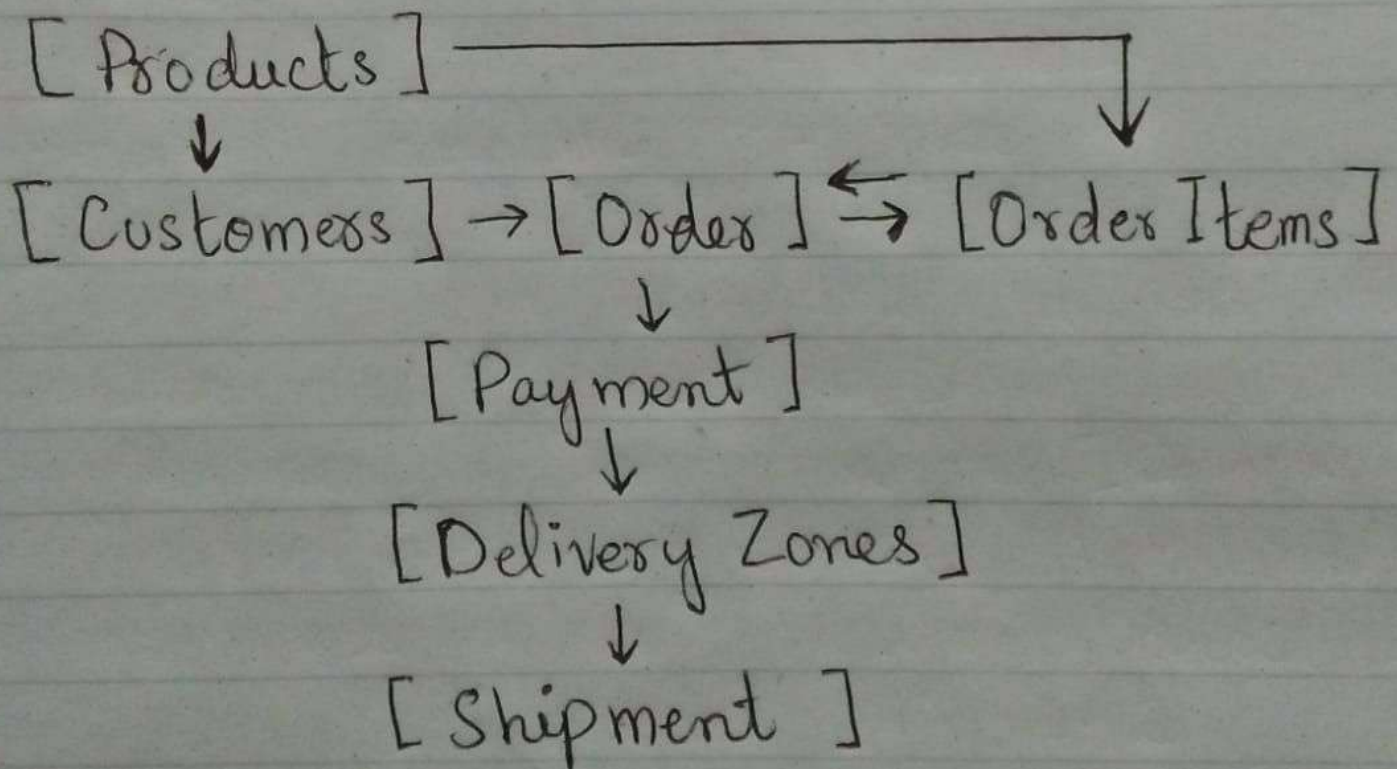 [ Products ]
↓
[ Customers ] → [ Order ] ⇆ [ Order Items ]
↓
[ Payment ]
↓
[ Delivery Zones ]
↓
[ Shipment ]